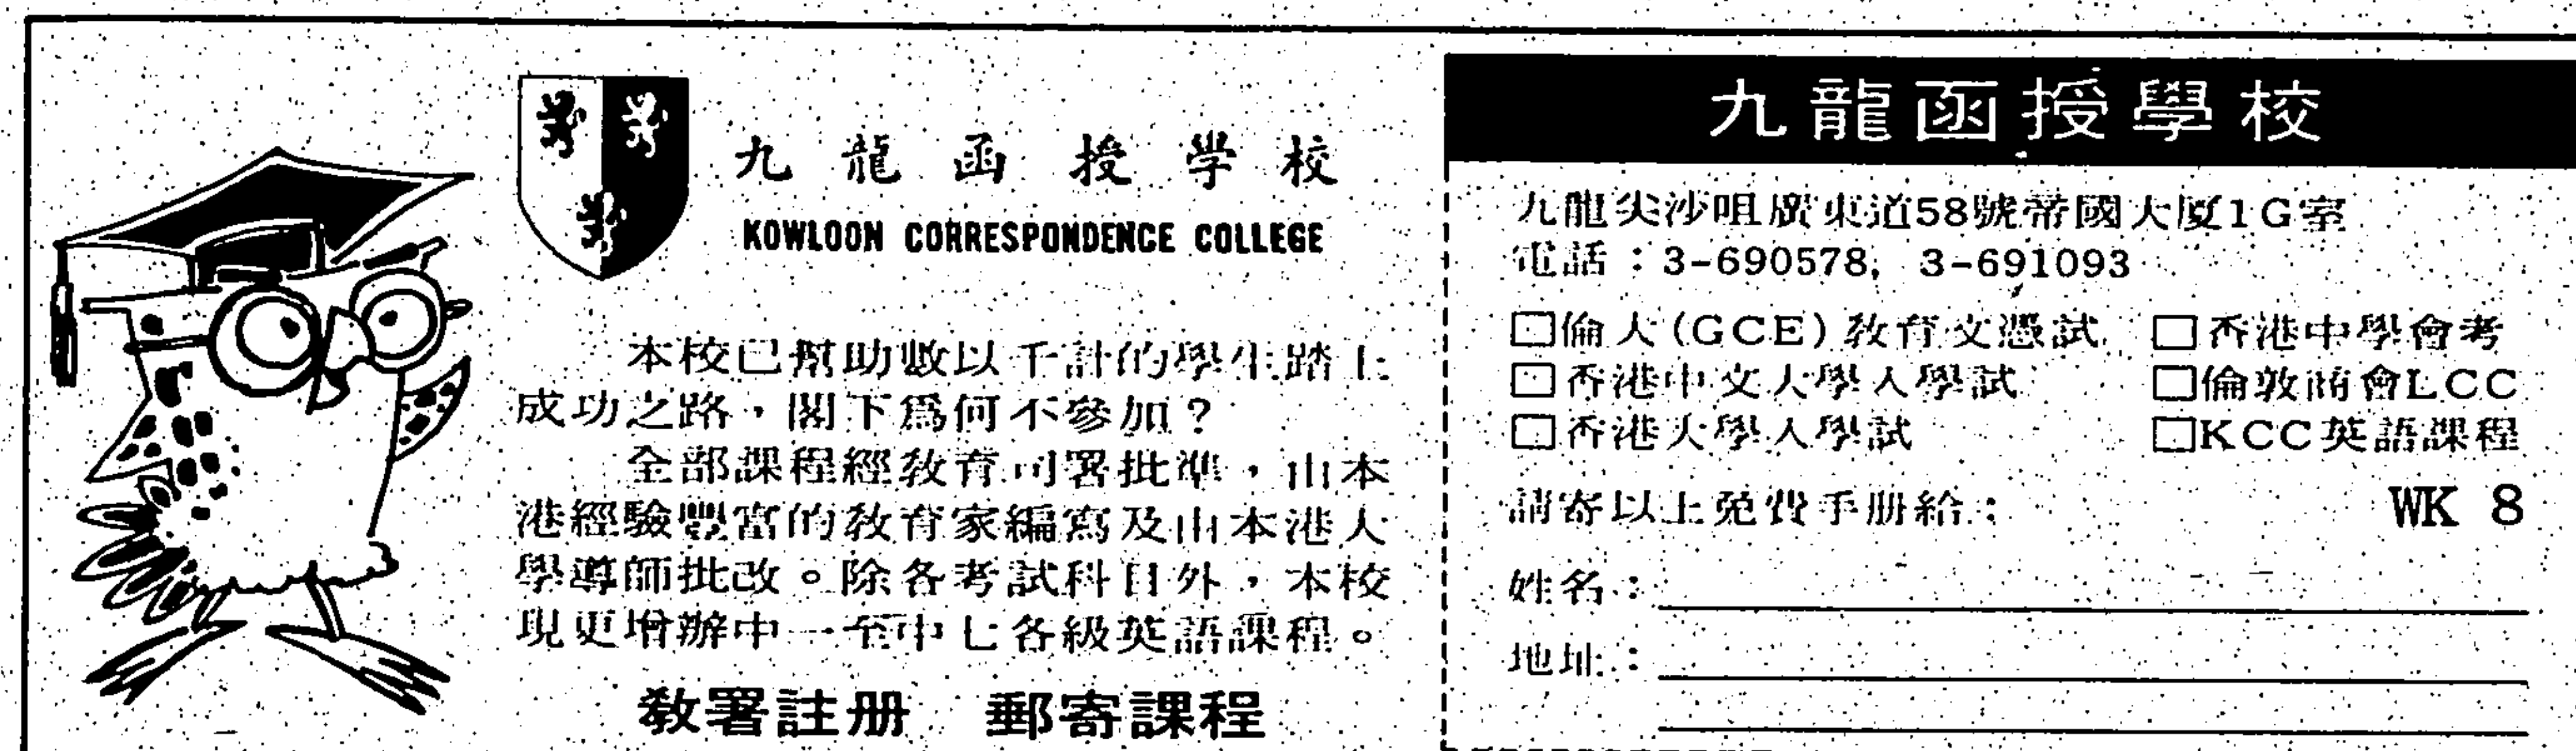 九龍函授学校
KOWLOON CORRESPONDENCE COLLEGE
本校已幫助數以千計的學生踏上
成功之路，閣下爲何不參加？
全部課程經敎育司署批準，由本
港經驗豐富的敎育家編寫及由本港大
學導師批改。除各考試科目外，本校
現更增辦中一至中七各級英語課程。
敎署註册　郵寄課程
九龍函授學校
九龍尖沙咀廣東道58號帝國大厦1G室
電話：3-690578, 3-691093
□倫大(GCE)敎育文憑試 □香港中學會考
□香港中文大學入學試 □倫敦商會LCC
□香港大學入學試 □KCC英語課程
請寄以上免費手册給：
WK 8
姓名：
地址：